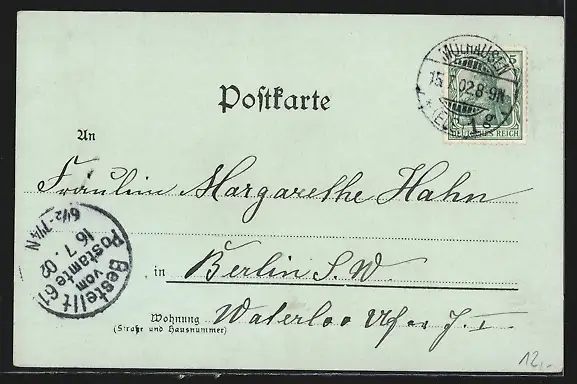 MÜLHAUSEN
15.7.02.8-9N.
5
REICH
Postkarte
An
Fräulein Margarethe Hahn
6½-7¼N
16.7.02
Bestellt
vom
Postamte 61
in Berlin S.W.
Wohnung Waterloo Ufer
(Straße und Hausnummer)
12,-